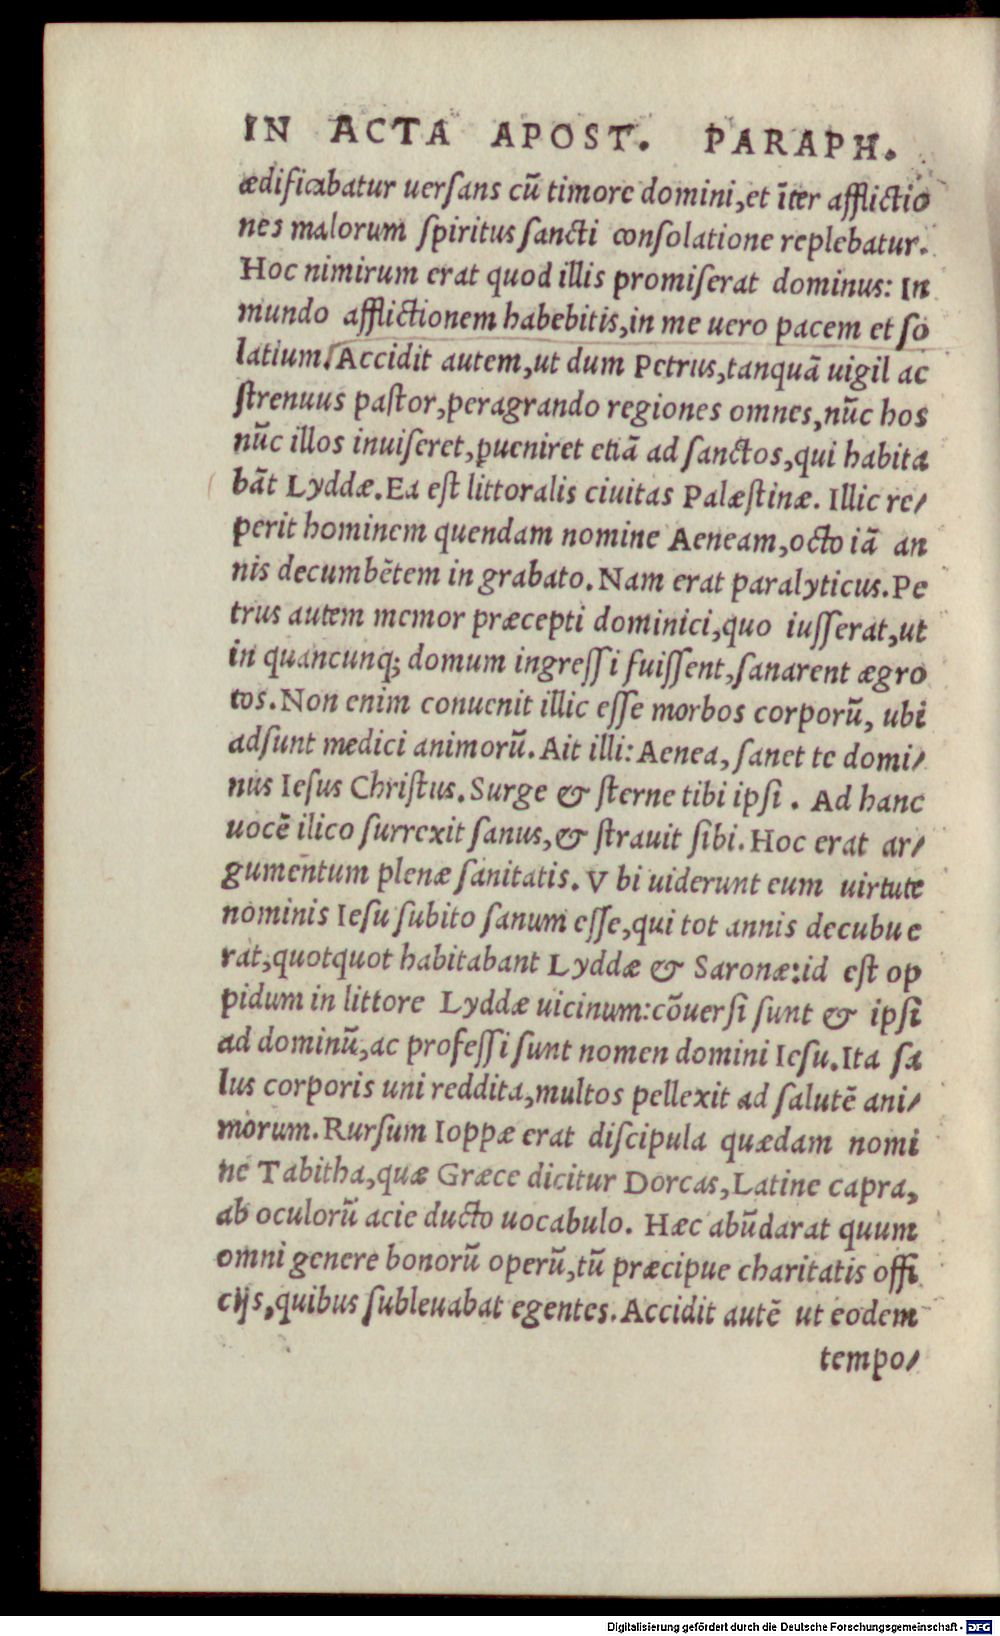 IN ACTA APOST. PARAPH.
ædificabatur uerſans cū timore domini,et īter afflictio
nes malorum ſpiritus ſancti conſolatione replebatur.
Hoc nimirum erat quod illis promiſerat dominus: In
mundo afflictionem habebitis,in me uero pacem et ſo
latium. Accidit autem,ut dum Petrus,tanquā uigil ac
ſtrenuus paſtor,peragrando regiones omnes,nūc hos
nūc illos inuiſeret,ꝑueniret etiā ad ſanctos,qui habita
bāt Lyddæ.Ea eſt littoralis ciuitas Palæſtinæ. Illic re/
perit hominem quendam nomine Aeneam,octo iā an
nis decumbētem in grabato.Nam erat paralyticus.Pe
trus autem memor præcepti dominici,quo iuſſerat,ut
in quancunq; domum ingreſſi fuiſſent,ſanarent ægro
tos.Non enim conuenit illic eſſe morbos corporū, ubi
adſunt medici animorū. Ait illi: Aenea, ſanet te domi/
nus Ieſus Chriſtus. Surge & ſterne tibi ipſi . Ad hanc
uocē ilico ſurrexit ſanus,& ſtrauit ſibi. Hoc erat ar/
gumentum plenæ ſanitatis. V bi uiderunt eum uirtute
nominis Ieſu ſubito ſanum eſſe,qui tot annis decubue
rat,quotquot habitabant Lyddæ & Saronæ:id eſt op
pidum in littore Lyddæ uicinum:cōuerſi ſunt & ipſi
ad dominū,ac profeſſi ſunt nomen domini Ieſu.Ita ſa
lus corporis uni reddita,multos pellexit ad ſalutē ani/
morum. Rurſum Ioppæ erat diſcipula quædam nomi
ne Tabitha,quæ Græce dicitur Dorcas,Latine capra,
ab oculorū acie ducto uocabulo. Hæc abūdarat quum
omni genere bonorū operū,tū præcipue charitatis offi
cijs,quibus ſubleuabat egentes. Accidit autē ut eodem
tempo/
Digitalisierung gefördert durch die Deutsche Forschungsgemeinschaft - DFG